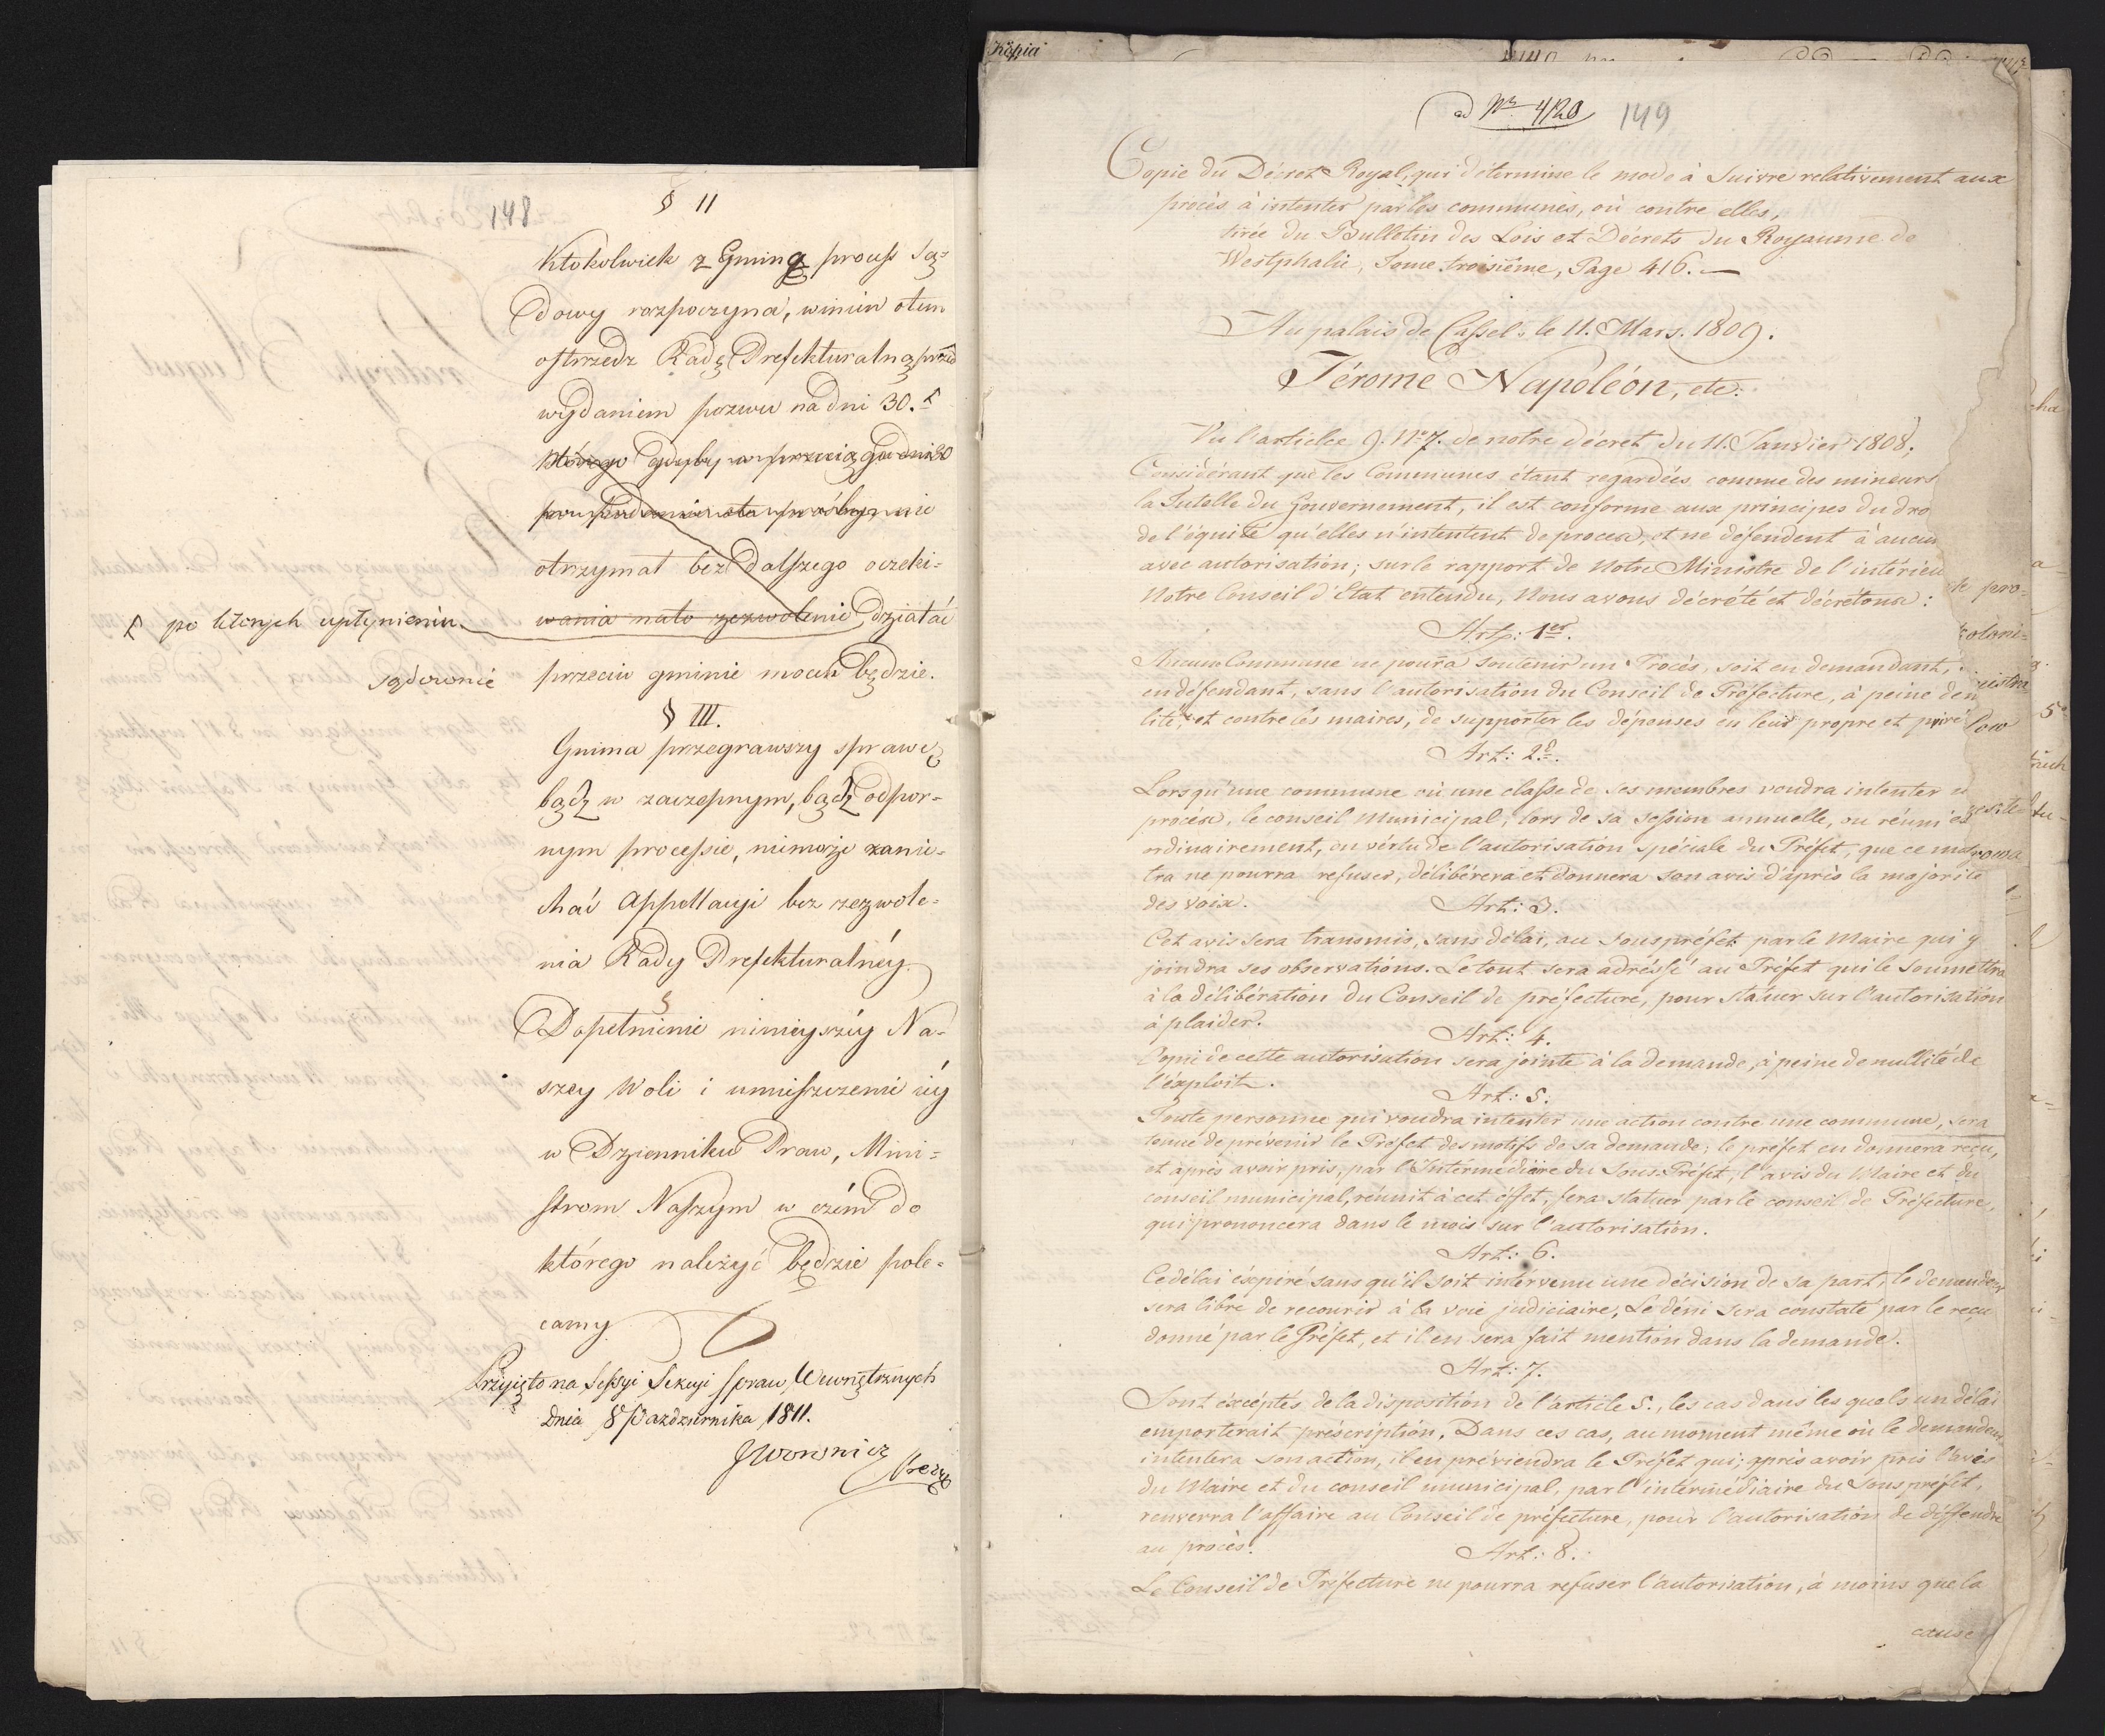 148
§ II
Ktokolwiek z Gminą process są=
dowy rozpoczyna, winien o tem
ostrzedz Radę Prefekturalną przed
wydaniem pozwu na dni 30. ſ
którego gdyby w przeciągu dni 30
po podaniu o to prośby, nie
otrzymał bez dalszego oczeki=
wania na to zezwolenie, działać
ſ po których upłynieniu
sądownie
przeciw gminie mocen będzie.
§ III.
Gmina przegrawszy sprawę
bądź w zaczepnym, bądź odpor=
nym processie, niemoże zanie=
chać Appellacyi bez zezwole=
nia Rady Prefekturalnéy.
§
Dopełnienie ninieyszéy Na=
szey Woli i umieszczenie iéy
w Dzienniku Praw, Mini=
strom Naszym w czém do
którego należyć będzie pole=
camy.
Przyięto na Sessyi Sekcyi spraw Wewnętrznych
Dnia 8 Października 1811.
Kopia
ad Nr 4120 149
Copie du Décret Royal, qui détermine le mode à suivre relativement aux
procès à intenter par les communes, où contre elles,
tirée du Bulletin des Lois et Décrets du Royaume de
Westphalie, Tome troisième, Page 416. —
Au palais de Cassel, le 11. Mars. 1809.
Jérome Napoléon, etc:
Vu l'article 9. No 7. de notre décret du 11. Janvier 1808;
Considérant que les Communes étant regardées comme des mineurs
la Tutelle du Gouvernement, il est conforme aux principes du dro
de l'équité qu'elles n'intentent de procès, et ne défendent à aucun
avec autorisation; sur le rapport de Notre Ministre de l'intérieu
Notre Conseil d'Etat entendu, Nous avons décrété et décrétons:
Art: 1er.
Aucune Commune ne pourra soutenir un Procès, soit en demandant,
en défendant, sans l'autorisation du Conseil de Préfecture, à peine de n
lité, et contre les maires, de supporter les dépenses en leur propre et privé
Art: 2e.
Lorsqu'une commune où une classe de ses membres voudra intenter u
procès, le conseil Municipal, lors de sa session annuelle, ou réuni ex
ordinairement, en vertu de l'autorisation spéciale du Préfet, que ce
tra ne pourra refuser, délibérera et donnera son avis d'après la majorité
des voix.
Art: 3.
Cet avis sera transmis, sans délai, au souspréfet par le Maire qui y
joindra ses observations. Le tout sera adréssé au Préfet qui le soumettra
à la délibération du Conseil de préfecture, pour statuer sur l'autorisation
à plaider.
Art: 4.
Copie de cette autorisation sera jointe à la demande, à peine de nullité de
l'éxploit.
Art: 5.
Toute personne qui voudra intenter une action contre une commune, sera
tenue de prévenir le Préfet des motifs de sa demande; le préfet en donnera reçu,
et après avoir pris, par l'Intermédiaire du Sous-Préfet, l'avis du Maire et du
conseil municipal, réunit à cet éffet, fera statuer par le conseil de Préfecture,
qui prononcera dans le mois sur l'autorisation.
Art: 6.
Ce délai éxpiré sans qu'il soit intervenu une décision de sa part, le demandeur
sera libre de recourir à la voie judiciaire. Le déni sera constaté par le reçu
donné par le Préfet, et il en sera fait mention dans la demande.
Art: 7.
Sont éxceptés de la disposition de l'article 5., les cas dans les quels un délai
emporterait préscription. Dans ces cas, au moment même où le demandeur
intentera son action, il en préviendra le Préfet qui, après avoir pris l'avis
du Maire et du conseil municipal, par l'intermédiaire du Souspréfet,
renverra l'affaire au Conseil de préfecture, pour l'autorisation de déffendre
au procès.
Art: 8.
Le Conseil de Préfecture ne pourra refuser l'autorisation, à moins que la
cause